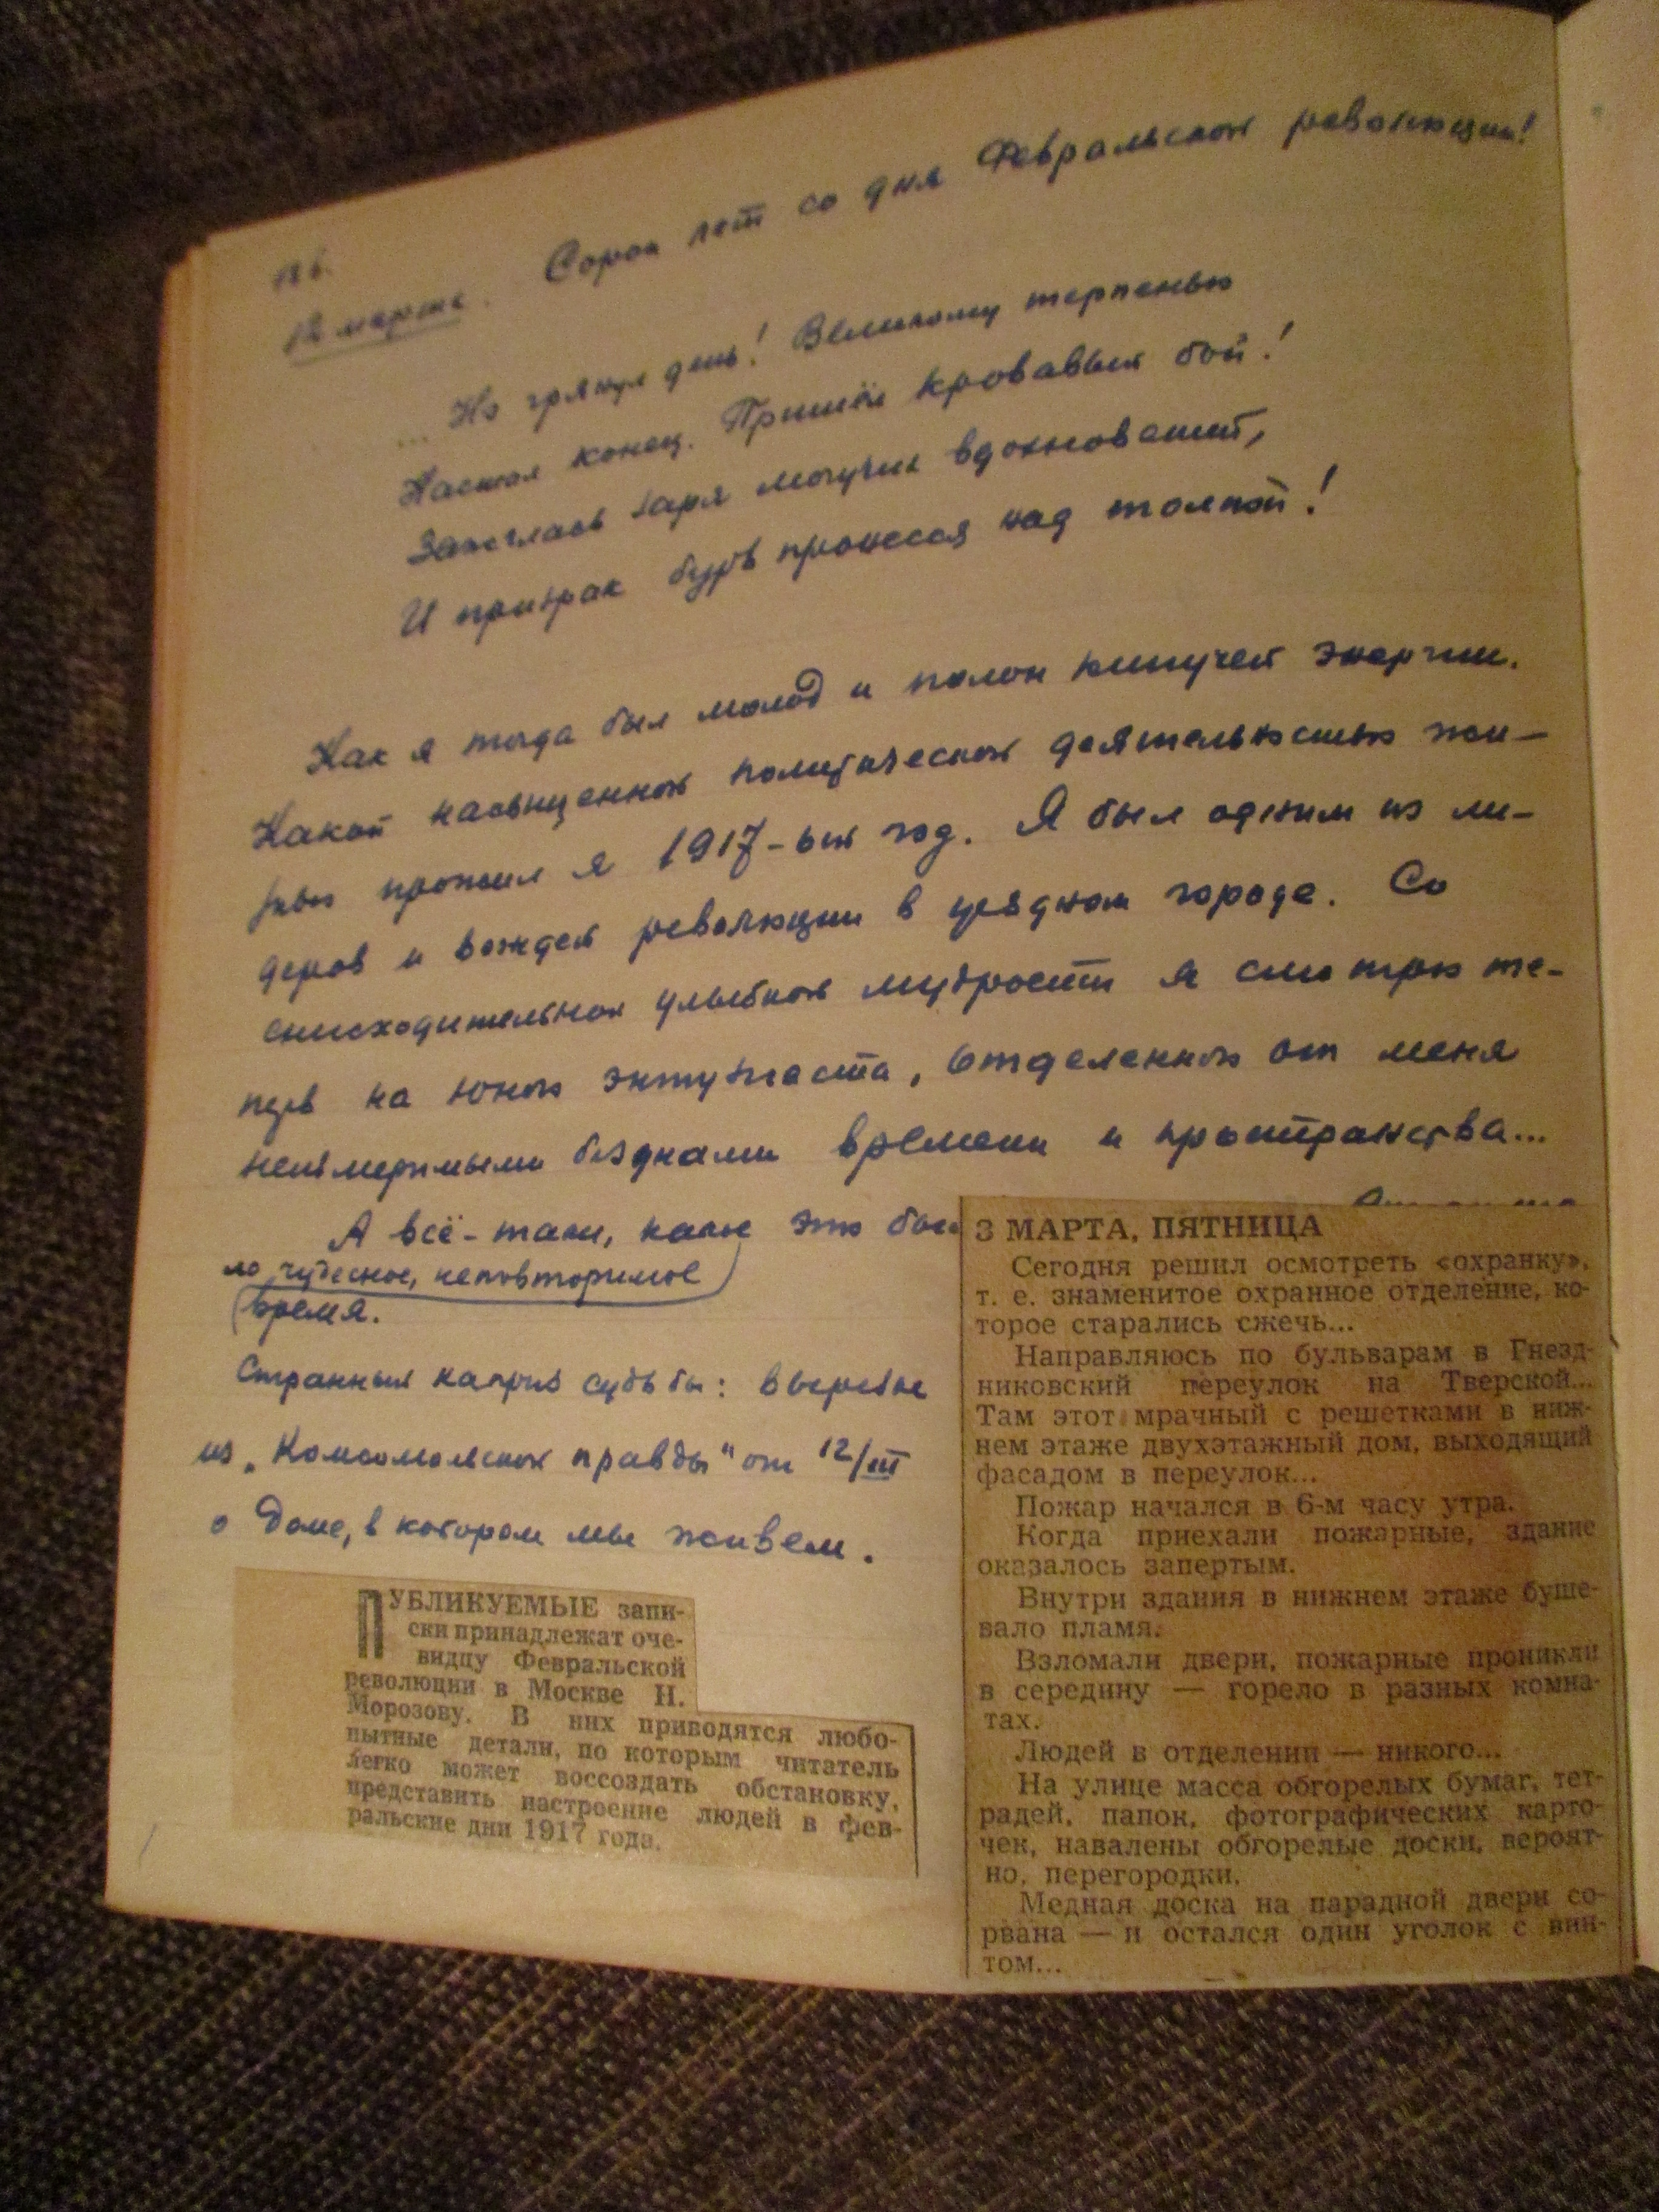 186.
12 марта. Сорок лет со дня Февральской революции!
... Но грянул день! Великому терпенью
Настал конец. Пришёл кровавый бой!
Зажглась заря могучих вдохновений,
И призрак бурь пронёсся над толпой!
Как я тогда был молод и полон кипучей энергии.
Какой насыщенной политической деятельностью жи-
знью прожил я 1917-ый год. Я был одним из ли-
деров и вождей революции в уездном городе. Со
снисходительной улыбкой мудрости я смотрю те-
перь на юного энтузиаста, отделенного от меня
неизмеримыми безднами времени и пространства...
А всё-таки, какое это бы
ло чудесное, неповторимое
время.
Странный каприз судьбы: вырезка
из „Комсомольской правды" от 12/III
о доме, в котором мы живем.
ПУБЛИКУЕМЫЕ запи-
ски принадлежат оче-
видцу Февральской
революции в Москве Н.
Морозову. В них приводятся любо-
пытные детали, по которым читатель
легко может воссоздать обстановку,
представить настроение людей в фев-
ральские дни 1917 года.
3 МАРТА, ПЯТНИЦА
Сегодня решил осмотреть «охранку»,
т. е. знаменитое охранное отделение, ко-
торое старались сжечь...
Направляюсь по бульварам в Гнезд-
никовский переулок на Тверской...
Там этот мрачный с решетками в ниж-
нем этаже двухэтажный дом, выходящий
фасадом в переулок...
Пожар начался в 6-м часу утра.
Когда приехали пожарные, здание
оказалось запертым.
Внутри здания в нижнем этаже буше-
вало пламя.
Взломали двери, пожарные проникли
в середину — горело в разных комна-
тах.
Людей в отделении — никого...
На улице масса обгорелых бумаг, тет-
радей, папок, фотографических карто-
чек, навалены обгорелые доски, вероят-
но, перегородки.
Медная доска на парадной двери со-
рвана — и остался один уголок с вин-
том...